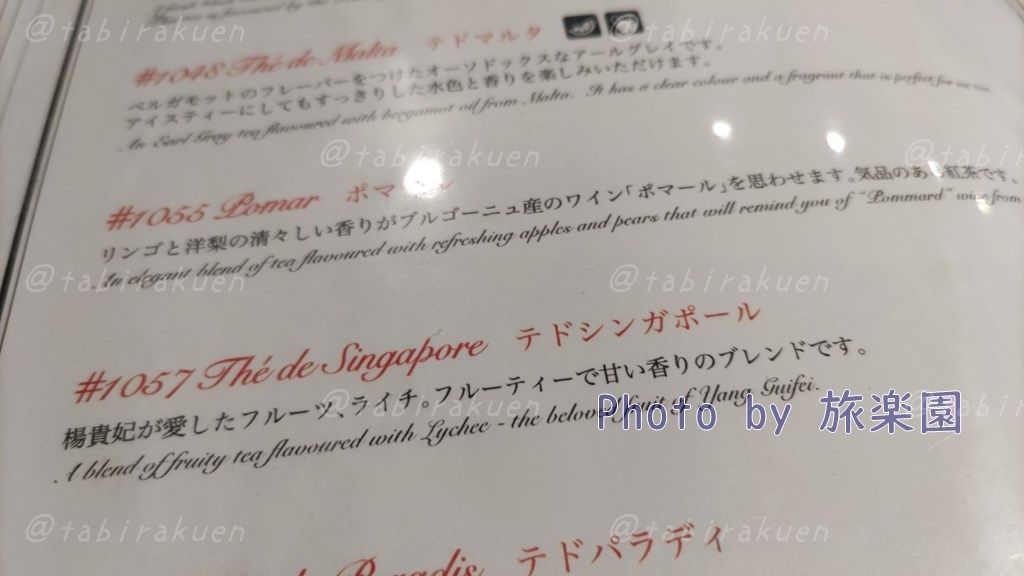 flavoured by the
#1048 Thé de Malta テドマルタ
ベルガモットのフレーバーをつけたオーソドックスなアールグレイです。
アイスティーにしてもすっきりした水色と香りを楽しみいただけます。
An Earl Gray tea flavoured with bergamot oil from Malta. It has a clear colour and a fragrant that is perfect for
#1055 Pomar ポマ
リンゴと洋梨の清々しい香りがブルゴーニュ産のワイン「ポマール」を思わせます。気品のあ 紅茶です。
An elegant blend of tea flavoured with refreshing apples and pears that will remind you of "Pommard" wine from
#1057 Thé de Singapore テドシンガポール
楊貴妃が愛したフルーツ、ライチ。フルーティーで甘い香りのブレンドです。
A blend of fruity tea flavoured with Lychee - the beloved fruit of Yang Guifei.
Paradis テドパラディ
Photo by 旅楽園
@tabirakuen
@tabirakuen
@tabirakuen
@tabirakuen
@tabirakuen
@tabirakuen
@tabirakuen
@tabirakuen
@tabirakuen
@tabirakuen